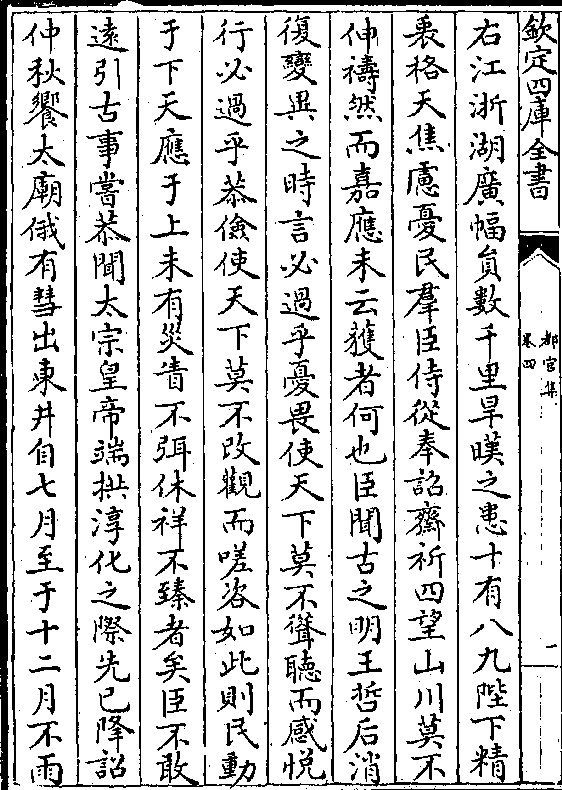 欽定四庫全書
都官集
卷四
一
右江浙湖廣幅員數千里旱暵之患十有八九陛下精
裵格天焦慮憂民羣臣侍從奉詔齋祈四望山川莫不
伸禱然而嘉應未云獲者何也臣聞古之明王哲后消
復變異之時言必過乎憂畏使天下莫不聳聽而感悅
行必過乎恭儉使天下莫不改觀而嗟咨如此則民動
于下天應于上未有災眚不弭休祥不臻者矣臣不敢
遠引古事嘗恭聞太宗皇帝端拱淳化之際先已降詔
仲秋饗太廟俄有彗出東井自七月至于十二月不雨